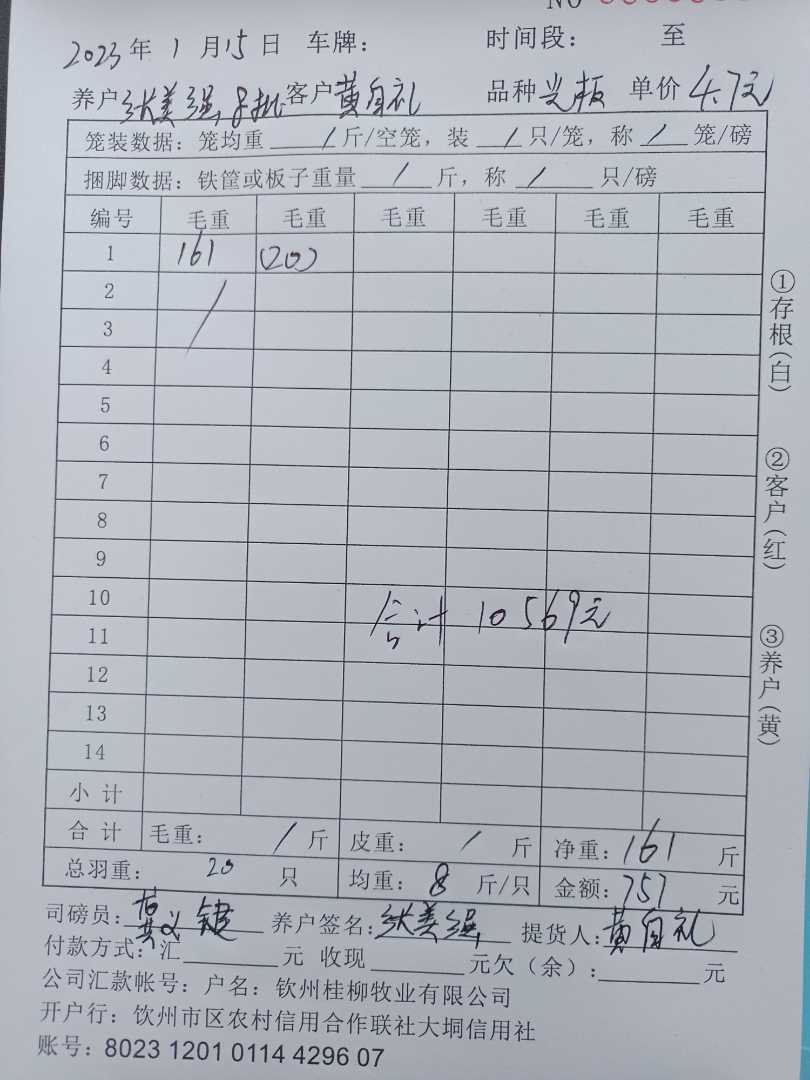 NO
2023年 1月15日 车牌： 时间段： 至
养户 张美强, 客户 黄自礼 品种 单价 4.7元
笼装数据：笼均重 / 斤/空笼，装 / 只/笼，称 / 笼/磅
捆脚数据：铁筐或板子重量 / 斤，称 / 只/磅
编号 毛重 毛重 毛重 毛重 毛重 毛重
1 161 (20)
2 /
3
4
5
6
7
8
9
10 合计 10569元
11
12
13
14
小计
合计 毛重： / 斤 皮重： / 斤 净重：161 斤
总羽重： 20 只 均重： 8 斤/只 金额：757 元
司磅员： 养户签名：张美强, 提货人：黄自礼
付款方式：汇 元 收现 元欠（余）： 元
公司汇款帐号：户名：钦州桂柳牧业有限公司
开户行：钦州市区农村信用合作联社大垌信用社
账号：8023 1201 0114 4296 07
①存根(白)
②客户(红)
③养户(黄)